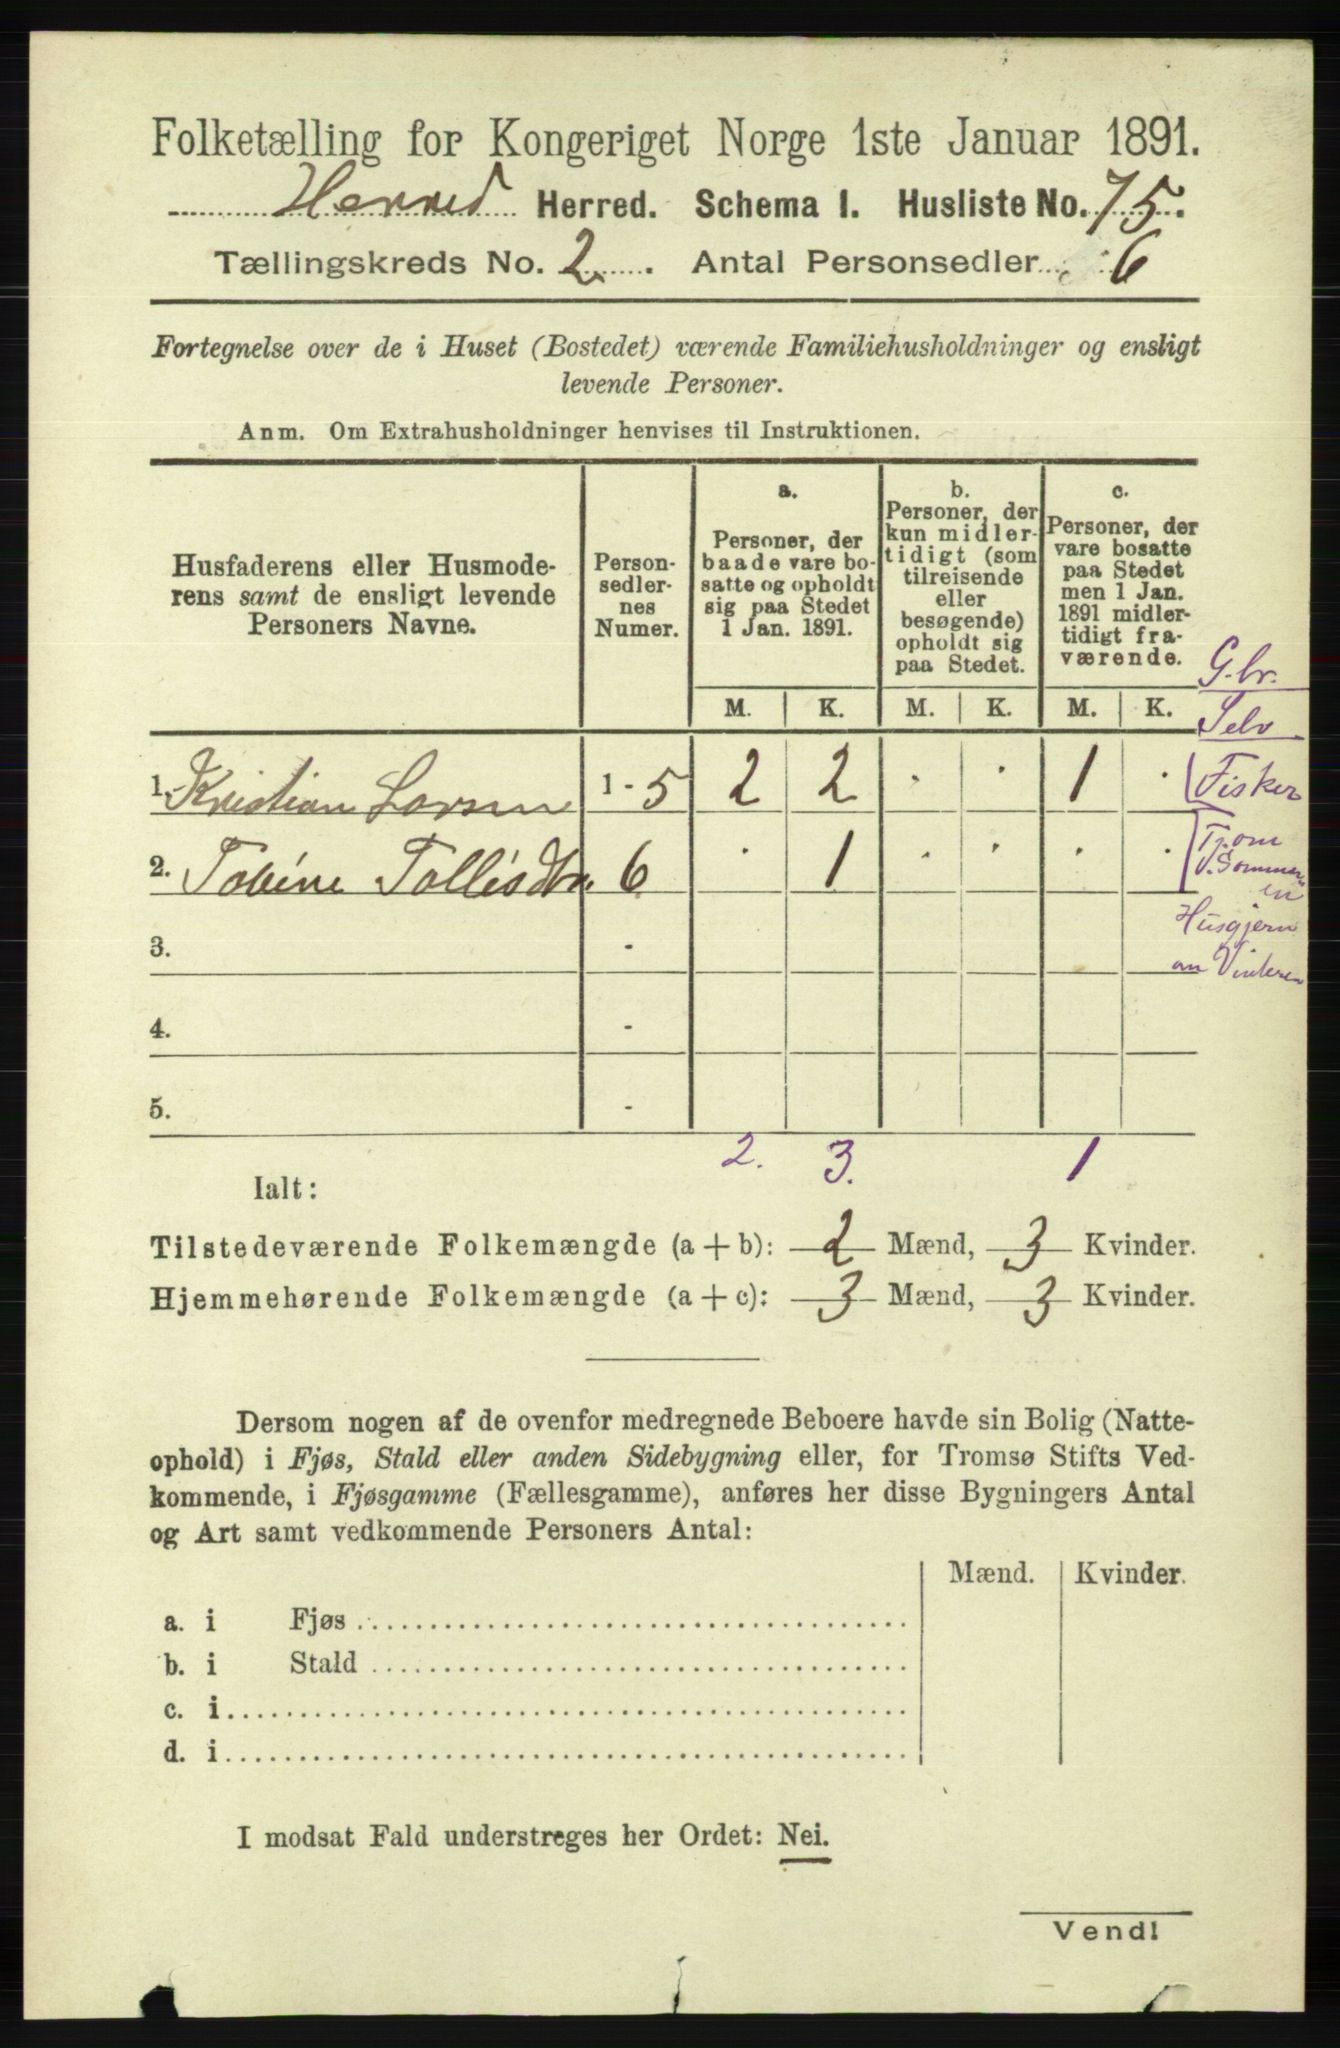 Folketælling for Kongeriget Norge 1ste Januar 1891.
Herred Herred. Schema I. Husliste No. 75.
Tællingskreds No. 2. Antal Personsedler 6
Fortegnelse over de i Huset (Bostedet) værende Familiehusholdninger og ensligt
levende Personer.
Anm. Om Extrahusholdninger henvises til Instruktionen.
Husfaderens eller Husmode-
rens samt de ensligt levende
Personers Navne.
Person-
sedler-
nes
Numer.
a.
Personer, der
baade vare bo-
satte og opholdt
sig paa Stedet
1 Jan. 1891.
b.
Personer, der
kun midler-
tidigt (som
tilreisende
eller
besøgende)
opholdt sig
paa Stedet.
c.
Personer, der
vare bosatte
paa Stedet
men 1 Jan.
1891 midler-
tidigt fra-
værende.
M. K. M. K. M. K.
G.br.
Selv
1. Kristian Larsen 1 - 5 2 2 · · 1 ·
Fisker
2. Tobine Tollisdtr. 6 · 1 · · · ·
Tj. om
Sommer
en
Husgjern
om Vinteren
3. -
4. -
5. -
2. 3. 1
Ialt:
Tilstedeværende Folkemængde (a + b): 2 Mænd, 3 Kvinder.
Hjemmehørende Folkemængde (a + c): 3 Mænd, 3 Kvinder.
Dersom nogen af de ovenfor medregnede Beboere havde sin Bolig (Natte-
ophold) i Fjøs, Stald eller anden Sidebygning eller, for Tromsø Stifts Ved-
kommende, i Fjøsgamme (Fællesgamme), anføres her disse Bygningers Antal
og Art samt vedkommende Personers Antal:
Mænd. Kvinder.
a. i Fjøs
b. i Stald
c. i
d. i
I modsat Fald understreges her Ordet: Nei.
Vend!